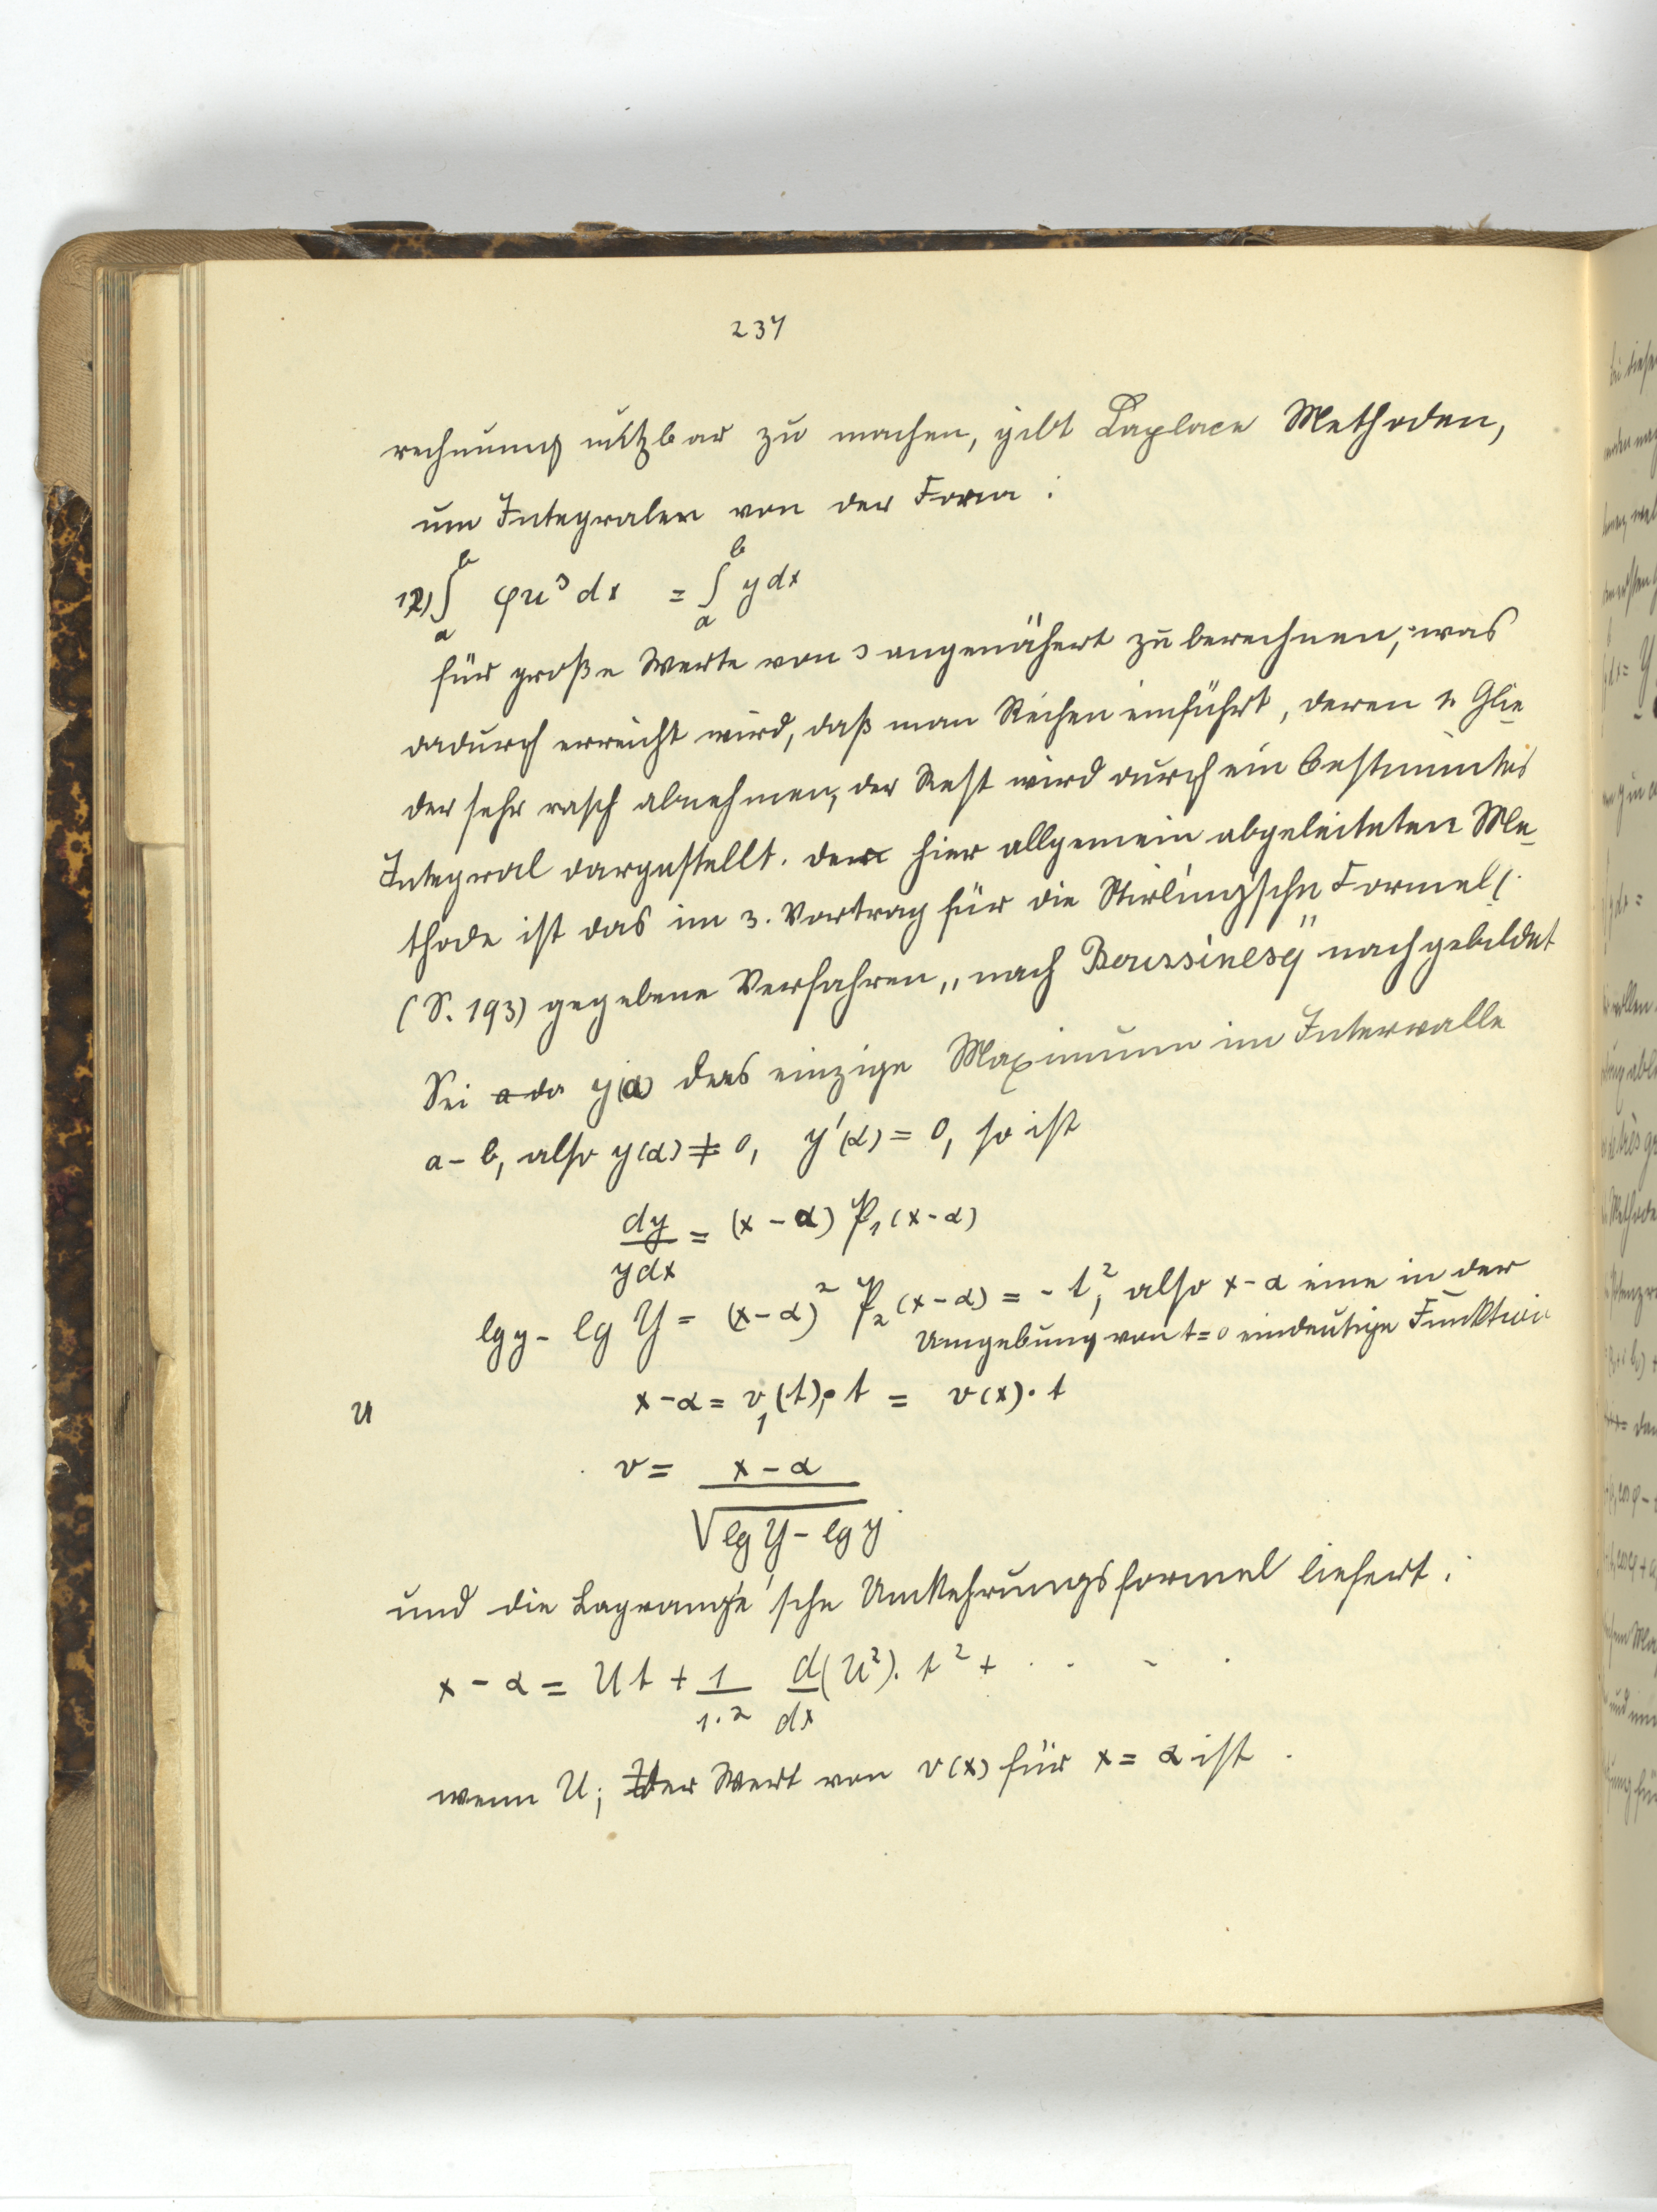 237
rechnung nützbar zu machen, gibt Laplace Methoden,
um Integralen von der Form :
12) ∫_a^b φu^s dx = ∫_a^b y dx
für große Werte von s angenähert zu berechnen, was
dadurch erreicht wird, daß man Reihen einführt, deren 1. Glie
der sehr rasch abnehmen, der Rest wird durch ein bestimmtes
Integral dargestellt. der hier allgemein abgeleiteten Me
thode ist das im 3. Vortrag für die Stirling'sche Formel
(S. 193) gegebene Verfahren „nach Boussinesq" nachgebildet
Sei y(α) das einzige Maximum im Intervalle
a - b, also y(α) ≠ 0, y'(α) = 0, so ist
dy/ydx = (x - α) P₁(x - α)
lg y - lg Y = (x - α)² P₂(x - α) = - t², also x - α eine in der
Umgebung von t = 0 eindeutige Funktion
x - α = v₁(t) · t = v(x) · t
U
v = (x - α)/√(lg Y - lg y)
und die Lagrange'sche Umkehrungsformel liefert :
x - α = U t + 1/1·2 d/dx (U²) · t² + · · · ·
wenn U, der Wert von v(x) für x = α ist .